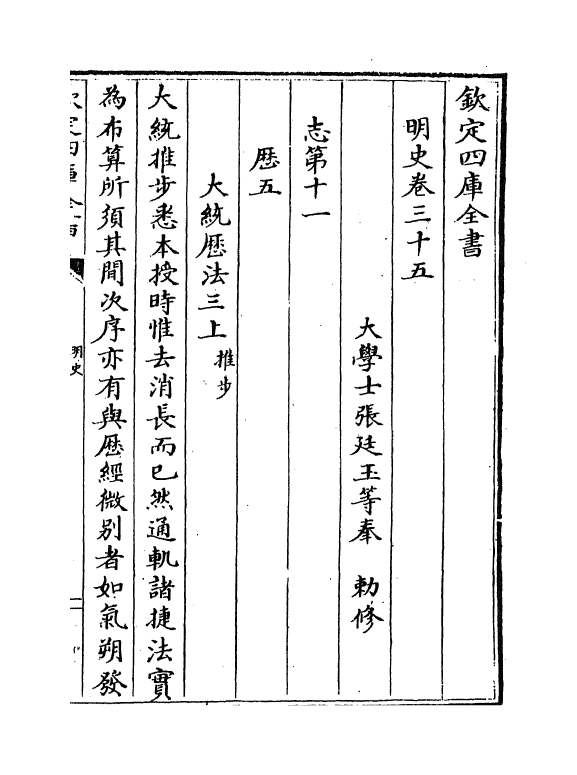 欽定四庫全書
明史卷三十五
大學士張廷玉等奉　勅修
志第十一
厯五
大統厯法三上推步
大統推步悉本授時惟去消長而已然通軌諸捷法實
為布算所須其間次序亦有與厯經微别者如氣朔發
明史